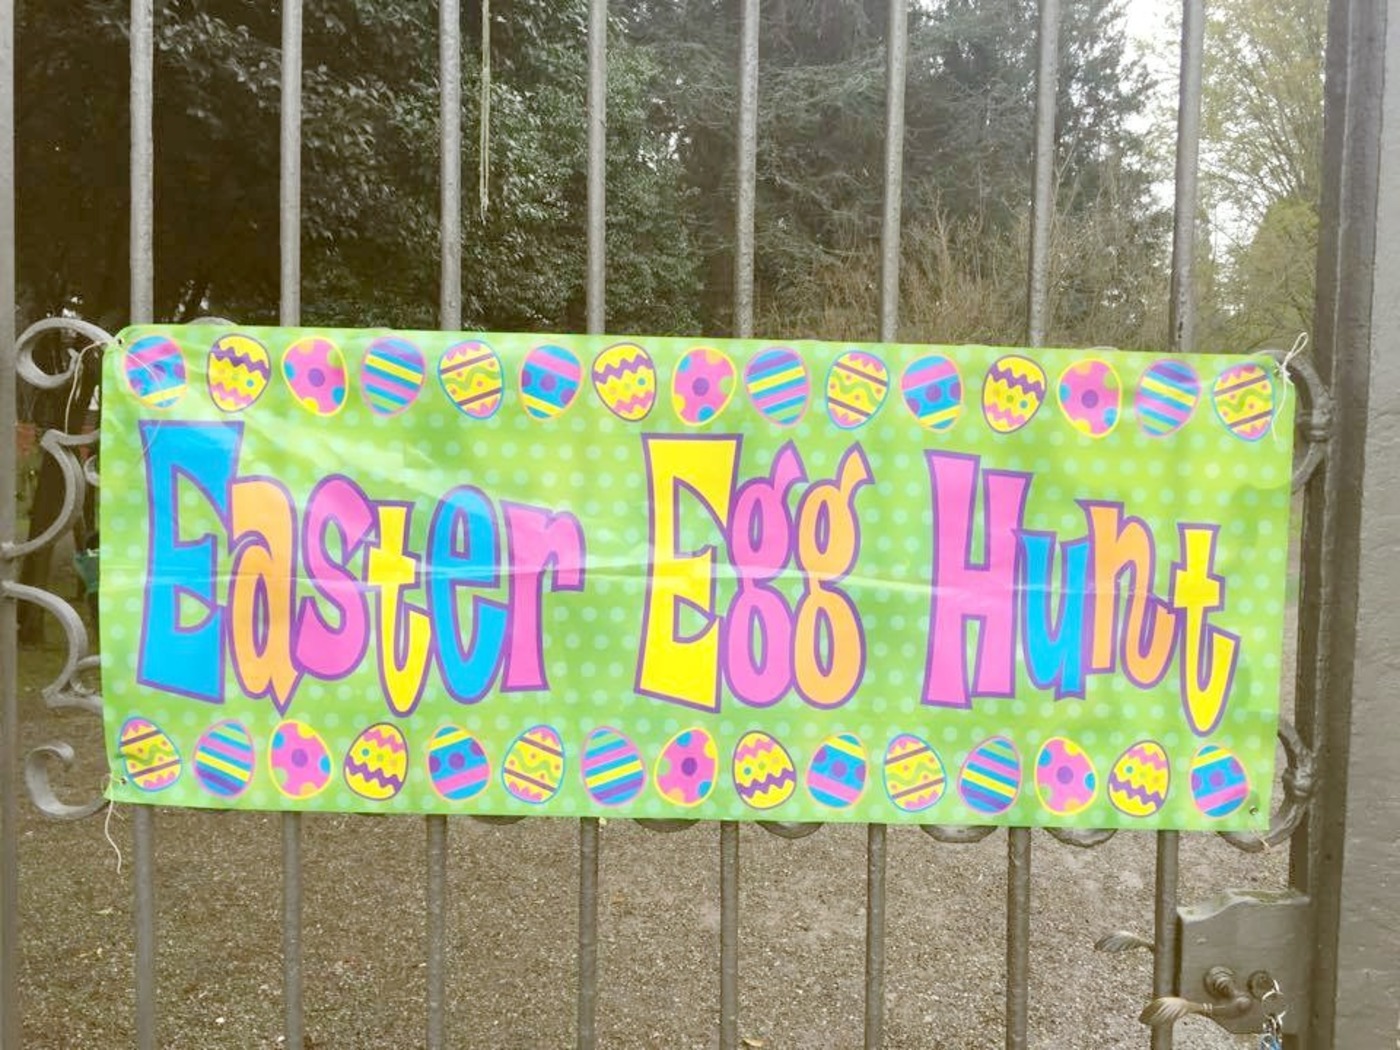 Easter Egg Hunt